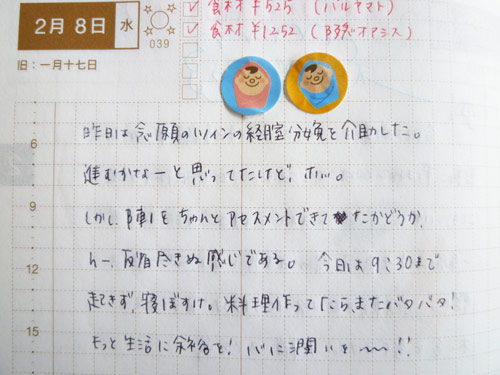 食材 ¥525 (バルヤマト)
2月 8日 水
食材 ¥1252 (阪急オアシス)
039
旧:一月十七日
昨日は念願のツインの経腟分娩を介助した。
6
進むかなーと思ってたけど、ホッ。
9
しかし、陣痛をちゃんとアセスメントできてたかどうか、
んー、反省尽きぬ感じである。今日は9:30まで
12
起きず、寝ぼすけ。料理作ってたら、またバタバタ!
15
もっと生活に余裕を!心に潤いを〜〜!!